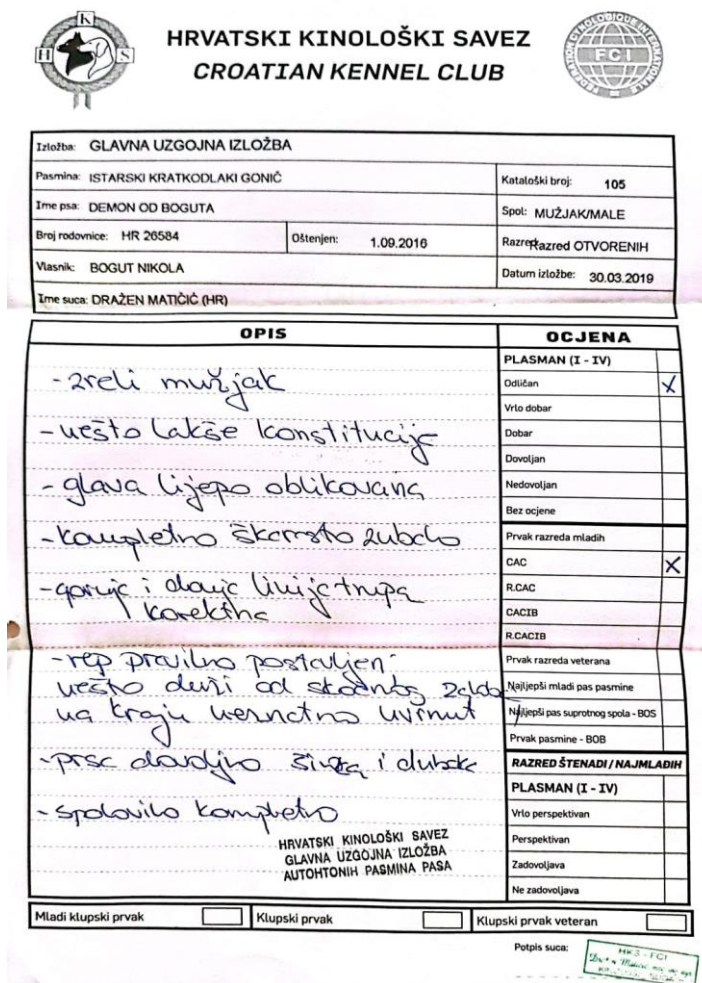 K
H S
HRVATSKI KINOLOŠKI SAVEZ
CROATIAN KENNEL CLUB
FEDERATION CYNOLOGIQUE INTERNATIONALE
FCI
Izložba: GLAVNA UZGOJNA IZLOŽBA
Pasmina: ISTARSKI KRATKODLAKI GONIČ
Kataloški broj: 105
Ime psa: DEMON OD BOGUTA
Spol: MUŽJAK/MALE
Broj rodovnice: HR 26584
Oštenjen: 1.09.2016
Razred Razred OTVORENIH
Vlasnik: BOGUT NIKOLA
Datum izložbe: 30.03.2019
Ime suca: DRAŽEN MATIČIĆ (HR)
OPIS
- zreli mužjak
- nešto lakše konstitucije
- glava lijepo oblikovana
- kompletno škarasto zubalo
- gornja i donja linija trupa
korektna
- rep pravilno postavljen
nešto duži od skočnog zgloba
na kraju uvrnut
- prsa dovoljno široka i duboka
- spolovilo kompletno
HRVATSKI KINOLOŠKI SAVEZ
GLAVNA UZGOJNA IZLOŽBA
AUTOHTONIH PASMINA PASA
OCJENA
PLASMAN (I - IV)
Odličan X
Vrlo dobar
Dobar
Dovoljan
Nedovoljan
Bez ocjene
Prvak razreda mladih
CAC X
R.CAC
CACIB
R.CACIB
Prvak razreda veterana
Najljepši mladi pas pasmine
Najljepši pas suprotnog spola - BOS
Prvak pasmine - BOB
RAZRED ŠTENADI / NAJMLAĐIH
PLASMAN (I - IV)
Vrlo perspektivan
Perspektivan
Zadovoljava
Ne zadovoljava
Mladi klupski prvak
Klupski prvak
Klupski prvak veteran
Potpis suca:
HKS - FCI